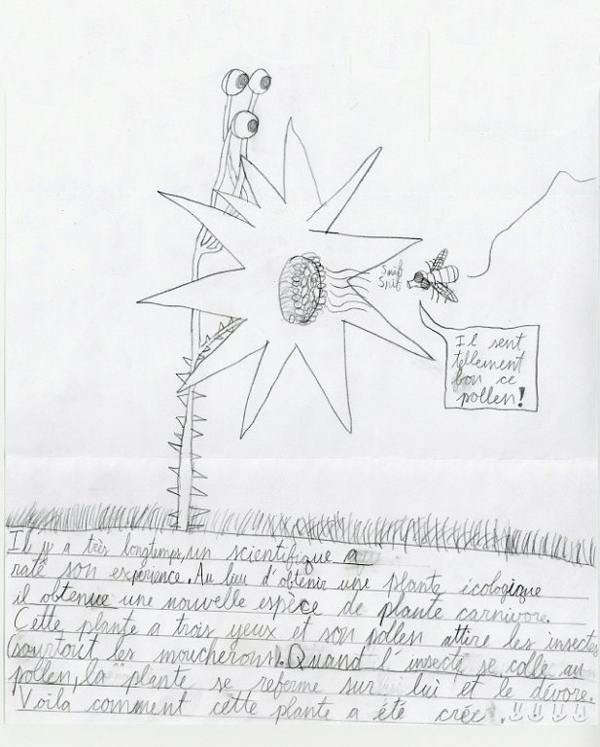 Snif
Snif
Il sent
tellement
bon ce
pollen!
Il y a très longtemps, un scientifique a
raté son expérience. Au lieu d'obtenir une plante écologique
il obtenue une nouvelle espèce de plante carnivore.
Cette plante a trois yeux et son pollen attire les insectes
(surtout les moucherons). Quand l'insecte se colle au
pollen, la plante se referme sur lui et le dévore.
Voila comment cette plante a été crée.